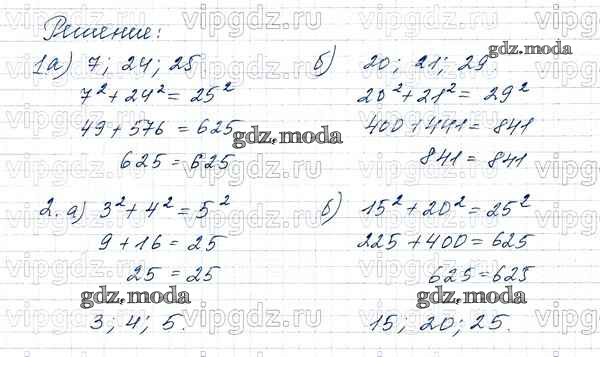 Решение:
1а) 7; 24; 25
7² + 24² = 25²
49 + 576 = 625
625 = 625
б) 20; 21; 29
20² + 21² = 29²
400 + 441 = 841
841 = 841
2. а) 3² + 4² = 5²
9 + 16 = 25
25 = 25
3; 4; 5.
б) 15² + 20² = 25²
225 + 400 = 625
625 = 625
15; 20; 25.
gdz.moda
gdz.moda
gdz.moda
gdz.moda
vipgdz.ru